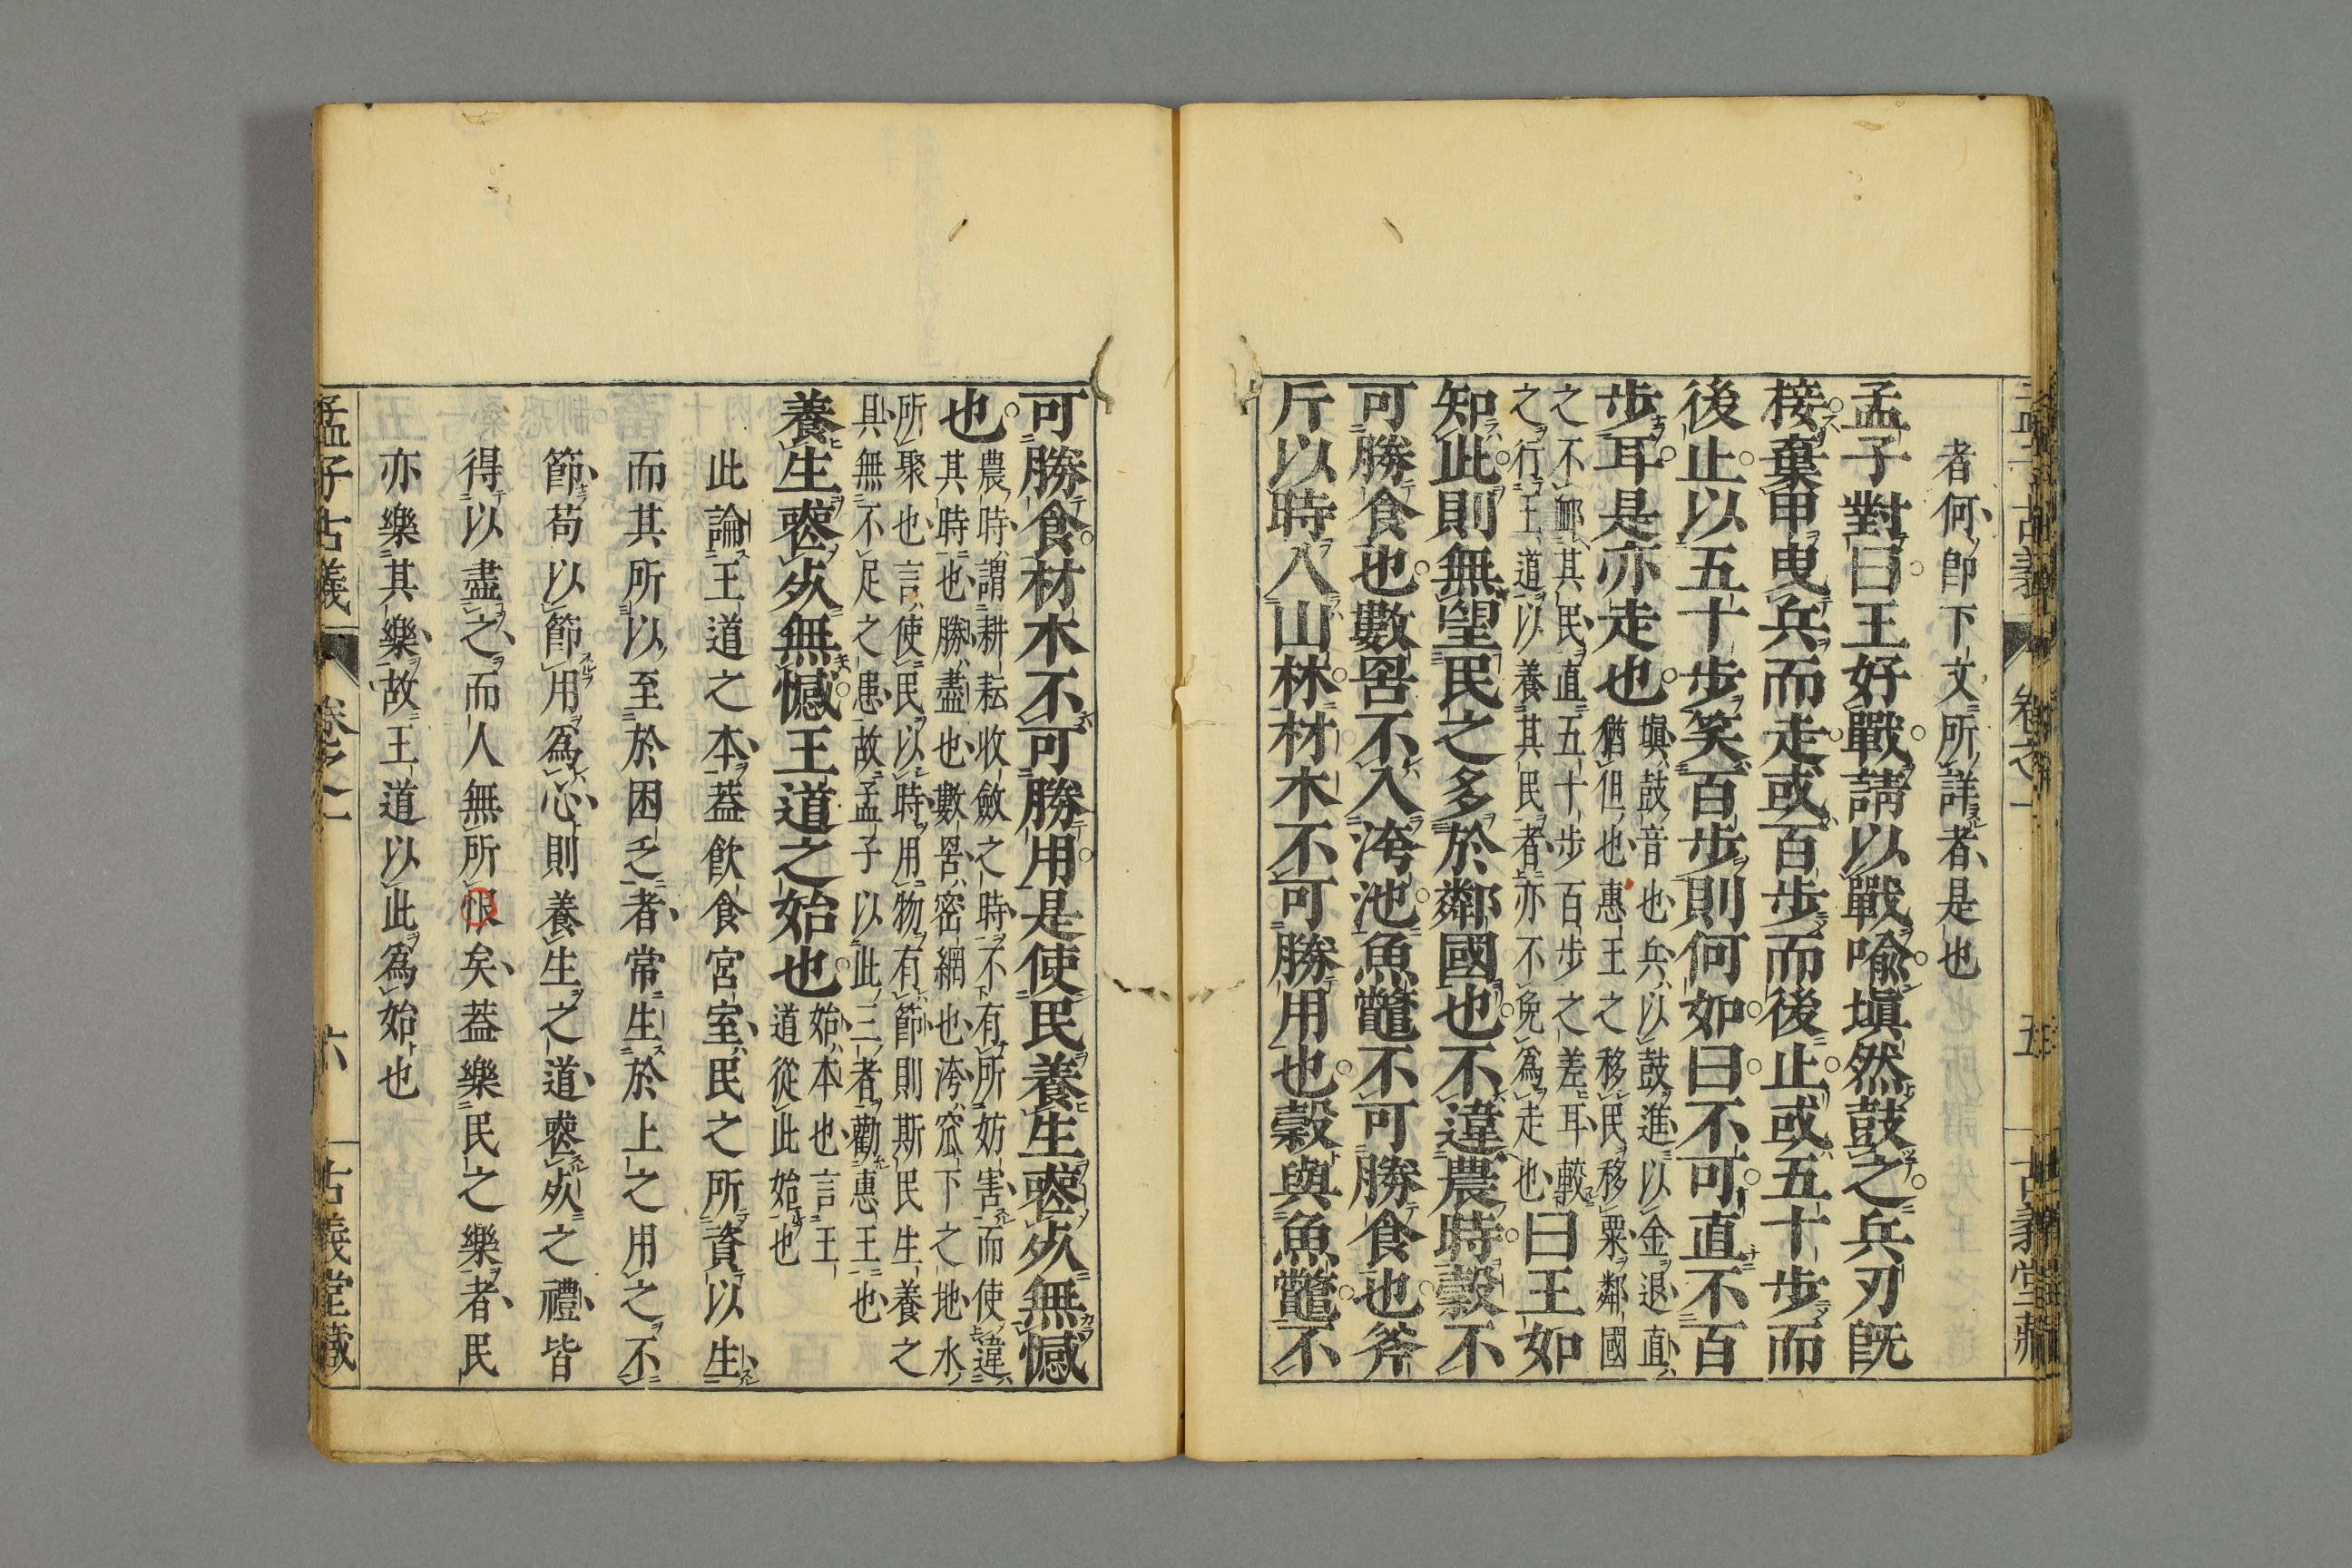 者何卽下文所詳者是也
孟子對曰王好戰請以戰喩塡然鼓之兵刃旣
接棄甲曳兵而走或百步而後止或五十步而
後止以五十步笑百步則何如曰不可直不百
步耳是亦走也
塡鼓音也兵以鼓進以金退直
猶但也惠王之移民移粟鄰國
之不䘏其民直五十步百步之差耳較
之行王道以養其民者亦不免爲走也
曰王如
知此則無望民之多於鄰國也不違農時穀不
可勝食也數罟不入洿池魚鼈不可勝食也斧
斤以時入山林材木不可勝用也穀與魚鼈不
孟子古義
卷之一
五
古義堂藏
可勝食材木不可勝用是使民養生喪死無憾
也
農時謂耕耘收斂之時不有所妨害而使違
其時也勝盡也數罟密網也洿窊下之地水
所聚也言使民以時用物有節則斯民生養之
具無不足之患故孟子以此三者勸惠王也
養生喪死無憾王道之始也
始本也言王
道從此始也
此論王道之本蓋飮食宮室民之所資以生
而其所以至於困乏者常生於上之用之不
節苟以節用爲心則養生之道喪死之禮皆
得以盡之而人無所恨矣蓋樂民之樂者民
亦樂其樂故王道以此爲始也
孟子古義
卷之一
六
古義堂藏